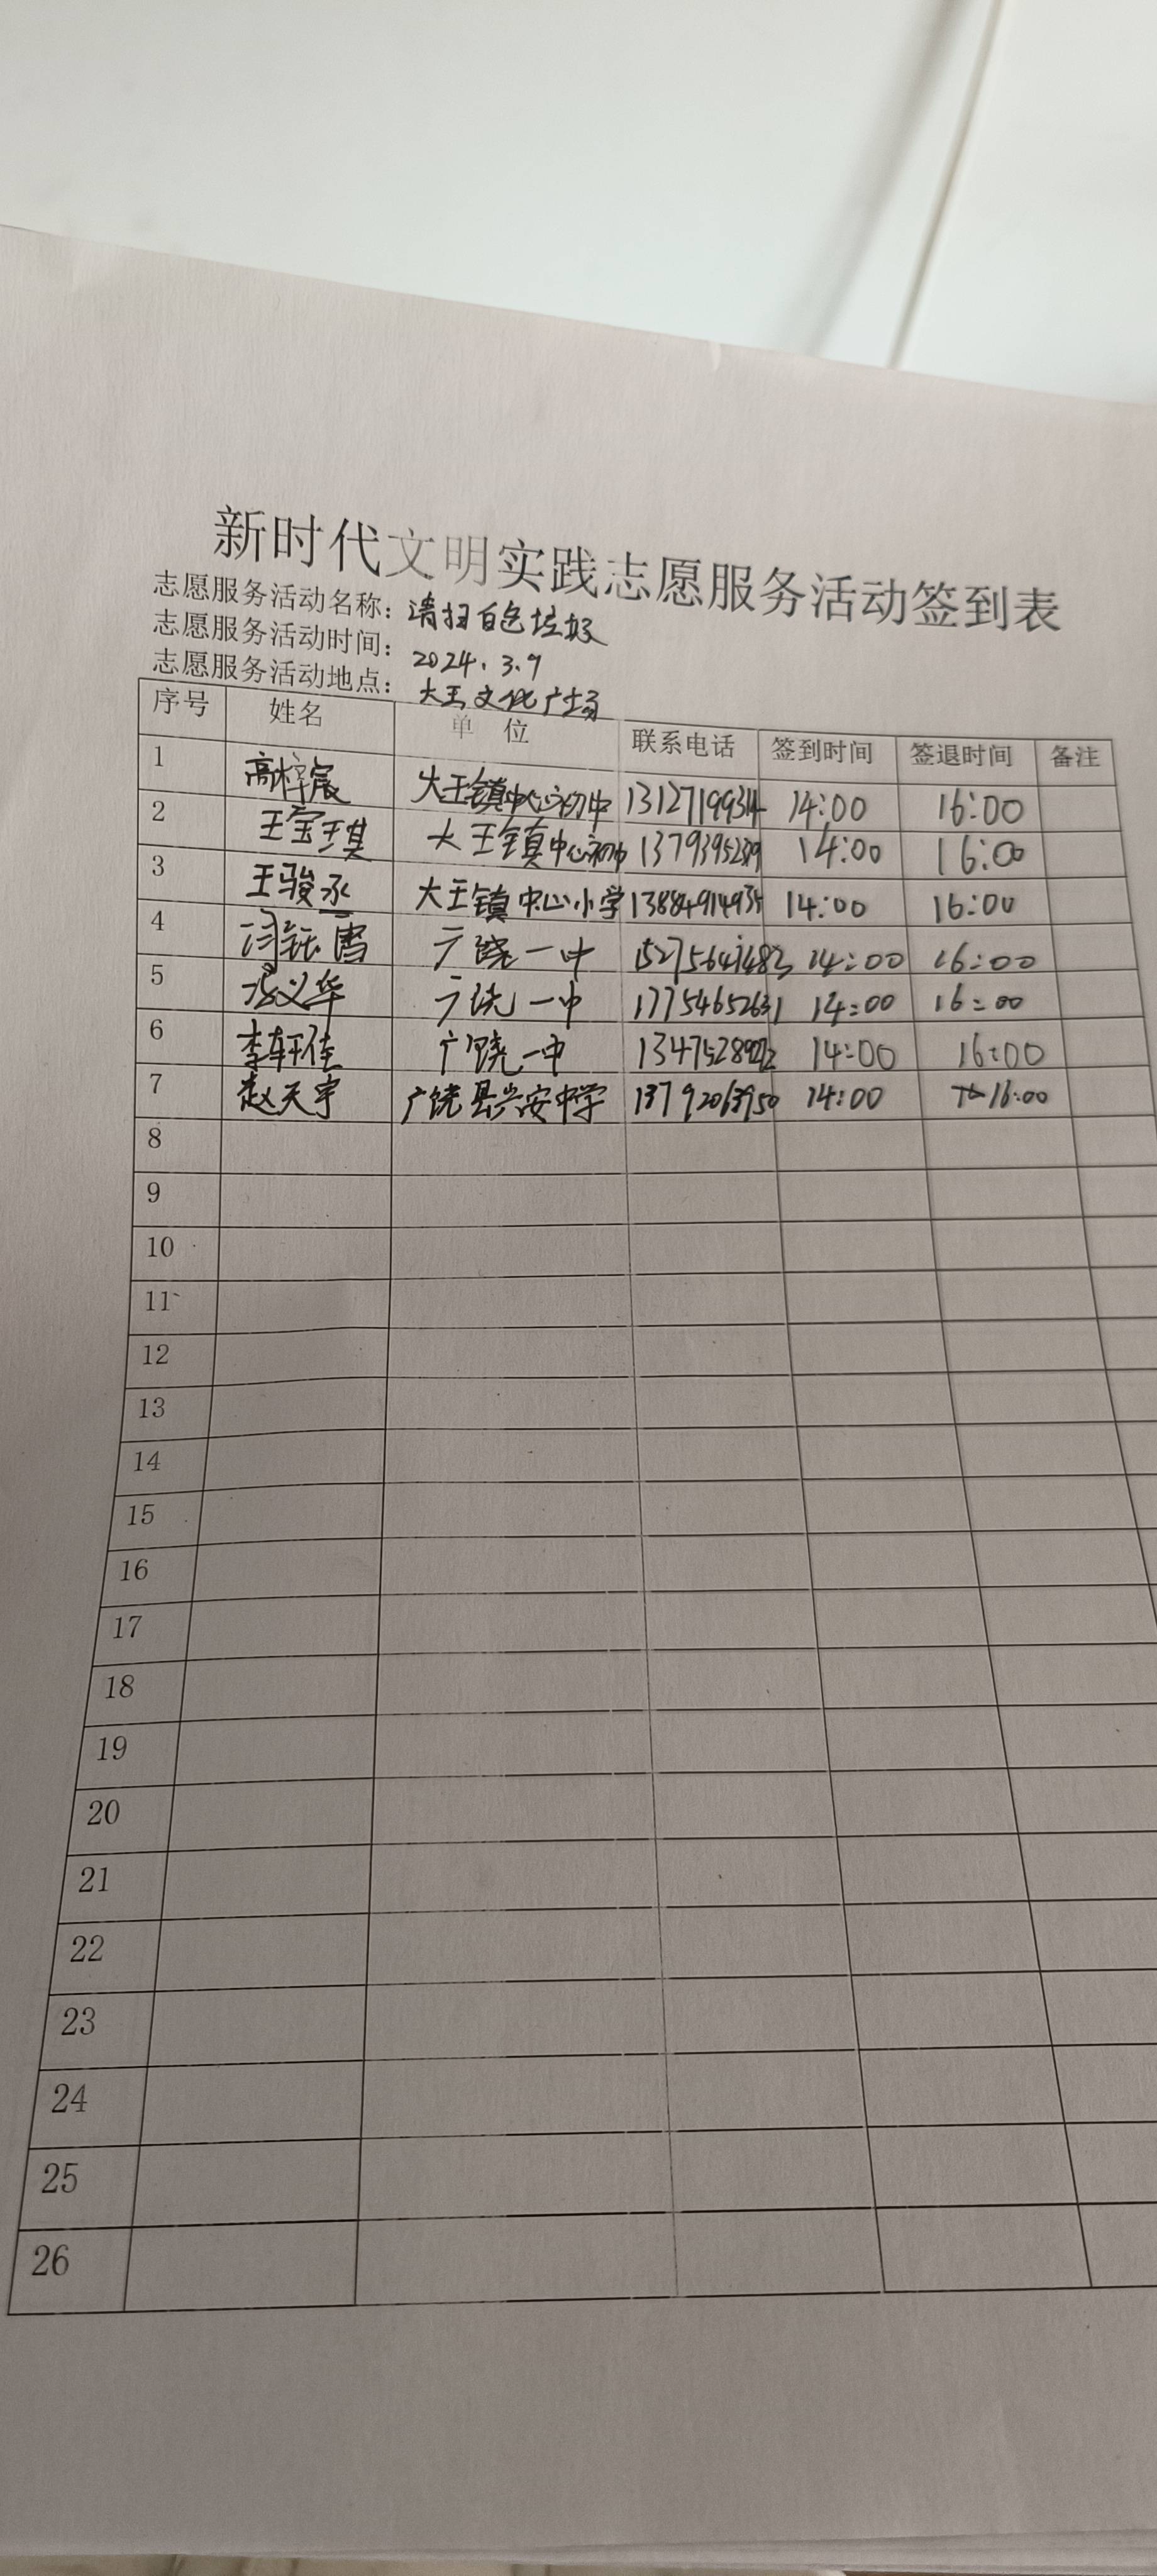 新时代文明实践志愿服务活动签到表
志愿服务活动名称：清扫白色垃圾
志愿服务活动时间：2024.3.9
志愿服务活动地点：大王文化广场
序号 姓名 单 位 联系电话 签到时间 签退时间 备注
1 高梓宸 大王镇中心初中 13127199314 14:00 16:00
2 王宝琪 大王镇中心初中 14:00 16:00
3 王骏丞 大王镇中心小学 13884914935 14:00 16:00
4 广饶一中 14:00 16:00
5 义华 广饶一中 17754652631 14:00 16:00
6 李轩佳 广饶一中 14:00 16:00
7 赵天宇 广饶县兴安中学 13792063950 14:00 16:00
8
9
10
11
12
13
14
15
16
17
18
19
20
21
22
23
24
25
26